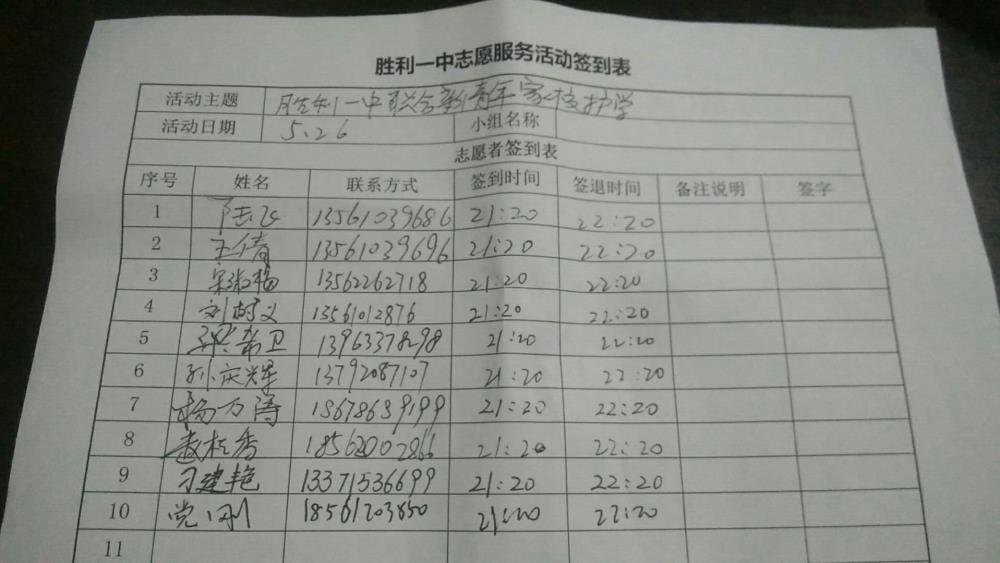 胜利一中志愿服务活动签到表
活动主题 胜利一中联合新青年家校护学
活动日期 5.26 小组名称
志愿者签到表
序号 姓名 联系方式 签到时间 签退时间 备注说明 签字
1 陆飞 13561039686 21:20 22:20
2 王倩 13561039696 21:20 22:20
3 13562262718 21:20 22:20
4 刘树义 13561012876 21:20 22:20
5 梁希卫 13963378298 21:20 22:20
6 孙庆辉 13792087107 21:20 22:20
7 杨万涛 15678659199 21:20 22:20
8 赵桂香 18562002866 21:20 22:20
9 刁建艳 13371536699 21:20 22:20
10 党刚 18561203650 21:20 22:20
11